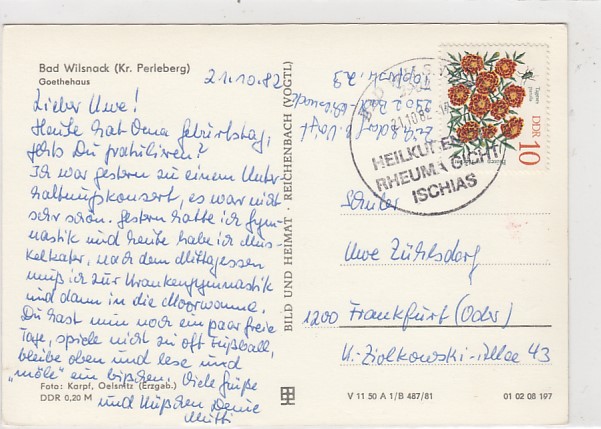 Bad Wilsnack (Kr. Perleberg)
Goethehaus
21.10.82
Lieber Uwe!
Heute hat Oma Geburtstag,
hats Du gratuliren?
Ich war gestern zu einem Unter
haltungskonzert, es war nicht
sehr schön. Gestern hatte ich Gym-
nastik und heute habe ich Mus-
kelkater, nach dem Mittagessen
muß ich zur Krankengymnastik
und dann in die Moorwanne.
Du hast nun noch ein paar freie
Tage, spiele nicht zu oft Fußball,
bleibe oben und lese und
"möle" ein bißchen. Viele Grüße
und Küßchen Deine
Mutti
Foto: Karpf, Oelsnitz (Erzgeb.)
DDR 0,20 M
BILD UND HEIMAT · REICHENBACH (VOGTL)
2902 Bad Wilsnack
21.10.82
HEILKUREN
RHEUMA GICHT
ISCHIAS
Tagetes patula
DDR
10
Schüler
Uwe Zühlsdorf
1200 Frankfurt (Oder)
K.-Ziolkowski-Allee 43
V 11 50 A 1/B 487/81
01 02 08 197